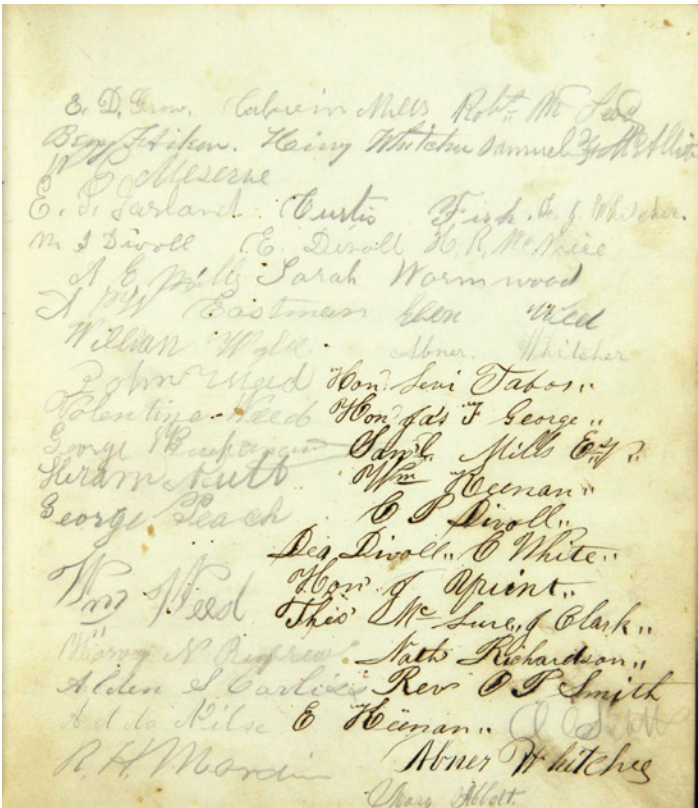 E. D. Grow. Calvin Mills Robt. Mc
Benj Aiken. Henry Whitcher Samuel
W P Meserve
E. S. Garland Curtis Fish. C. J. Whitcher.
M S Divoll E. Divoll H. R. McNiece
A E Mills Sarah Wormwood
A Eastman Eben Weed
William Wylie Abner. Whitcher
John Weed Hon. Levi Tabor "
Valentine Weed Hon Jas F George "
George Saml. Mills Esq.
Hiram Nutt Wm Keenan "
George Peach C P Divoll "
Dea Divoll " C White "
Wm Weed Hon J "
Thos McLure " J Clark "
Harvey N Renfrew Nath Richardson "
Alden S Rev O P Smith
E Keenan "
R. H. Abner Whitcher
Mary Abbott.